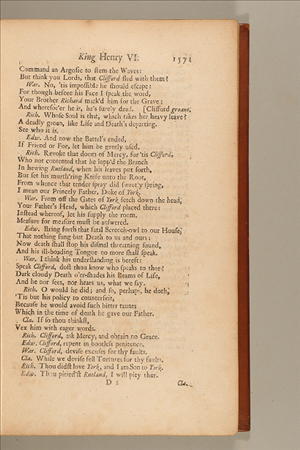 King Henry VI. 1571
Command an Argosie to stem the Waves:
But think you Lords, that Clifford fled with them?
War. No, 'tis impossible he should escape:
For though before his Face I speak the word,
Your Brother Richard mark'd him for the Grave:
And wheresoe'er he is, he's surely dead. [Clifford groans.
Rich. Whose Soul is that, which takes her heavy leave?
A deadly groan, like Life and Death's departing.
See who it is.
Edw. And now the Battel's ended,
If Friend or Foe, let him be gently used.
Rich. Revoke that doom of Mercy, for 'tis Clifford,
Who not contented that he lopp'd the Branch
In hewing Rutland, when his leaves put forth,
But set his murth'ring Knife unto the Root,
From whence that tender spray did sweetly spring,
I mean our Princely Father, Duke of York.
War. From off the Gates of York fetch down the head,
Your Father's Head, which Clifford placed there:
Instead whereof, let his supply the room.
Measure for measure must be answered.
Edw. Bring forth that fatal Screech-owl to our House,
That nothing sung but Death to us and ours:
Now death shall stop his dismal threatning sound,
And his ill-boading Tongue no more shall speak.
War. I think his understanding is bereft:
Speak Clifford, dost thou know who speaks to thee?
Dark cloudy Death o'er-shades his Beams of Life,
And he nor sees, nor hears us, what we say.
Rich. O would he did; and so, perhaps, he doth,
'Tis but his policy to counterfeit,
Because he would avoid such bitter taunts
Which in the time of death he gave our Father.
Cla. If so thou thinkst,
Vex him with eager words.
Rich. Clifford, ask Mercy, and obtain no Grace.
Edw. Clifford, repent in bootless penitence.
War. Clifford, devise excuses for thy faults.
Cla. While we devise fell Tortures for thy faults.
Rich. Thou didst love York, and I am Son to York.
Edw. Thou pitied'st Rutland, I will pity thee.
D 2 Cla.